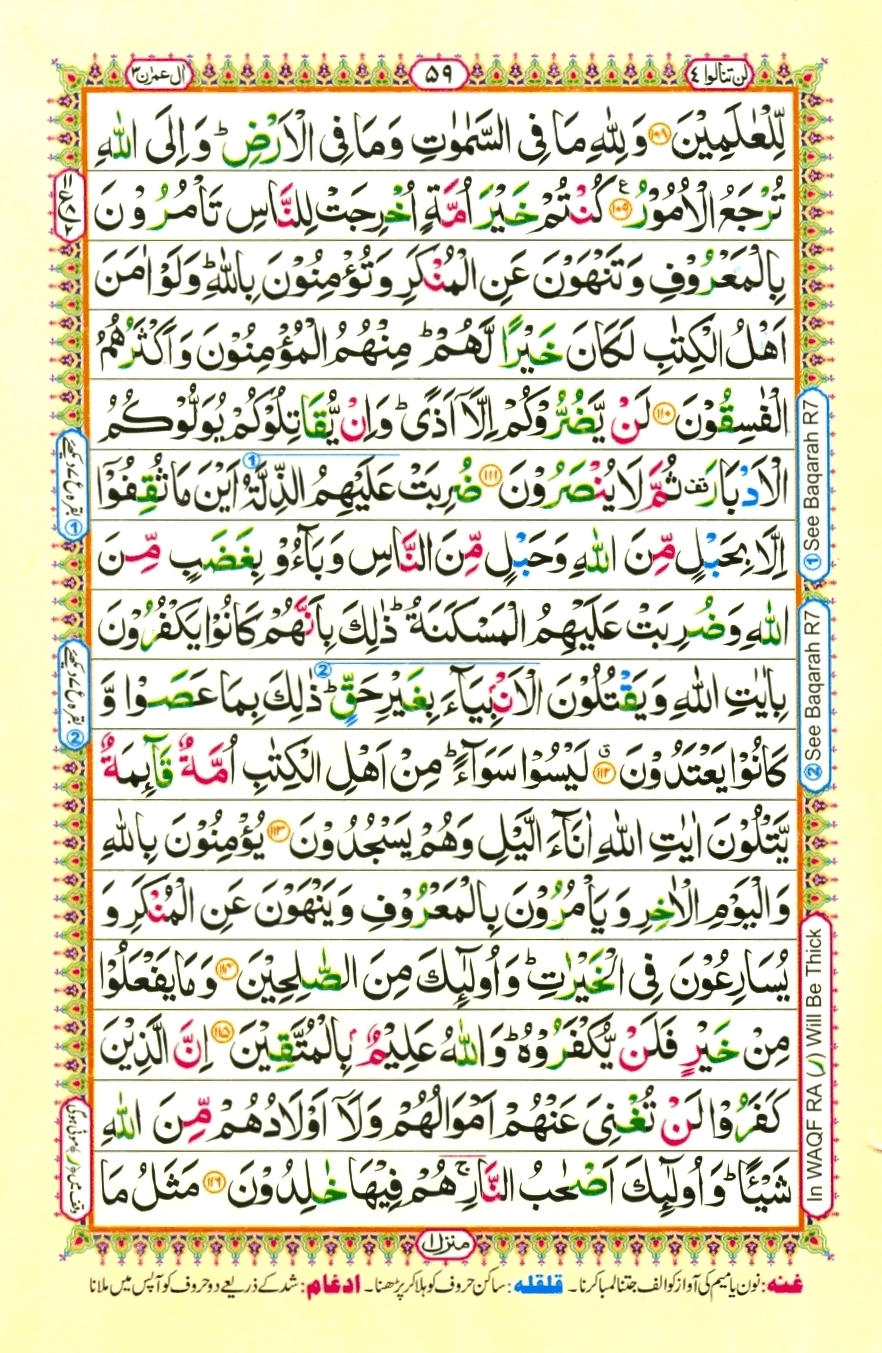 لن تنالوا ٤
۵۹
اٰل عمرٰن ۳
لِّلْعٰلَمِیْنَ ۱۰۸ وَ لِلّٰهِ مَا فِی السَّمٰوٰتِ وَمَا فِی الْاَرْضِ ؕ وَ اِلَی اللّٰهِ
تُرْجَعُ الْاُمُوْرُ ۱۰۹ ع كُنْتُمْ خَیْرَ اُمَّةٍ اُخْرِجَتْ لِلنَّاسِ تَاْمُرُوْنَ
بِالْمَعْرُوْفِ وَ تَنْهَوْنَ عَنِ الْمُنْكَرِ وَ تُؤْمِنُوْنَ بِاللّٰهِ ؕ وَ لَوْ اٰمَنَ
اَهْلُ الْكِتٰبِ لَكَانَ خَیْرًا لَّهُمْ ؕ مِنْهُمُ الْمُؤْمِنُوْنَ وَ اَكْثَرُهُمُ
الْفٰسِقُوْنَ ۱۱۰ لَنْ یَّضُرُّوْكُمْ اِلَّاۤ اَذًی ؕ وَ اِنْ یُّقَاتِلُوْكُمْ یُوَلُّوْكُمُ
الْاَدْبَارَ قف ثُمَّ لَا یُنْصَرُوْنَ ۱۱۱ ضُرِبَتْ عَلَیْهِمُ الذِّلَّةُ ① اَیْنَ مَا ثُقِفُوْۤا
اِلَّا بِحَبْلٍ مِّنَ اللّٰهِ وَ حَبْلٍ مِّنَ النَّاسِ وَ بَآءُوْ بِغَضَبٍ مِّنَ
اللّٰهِ وَ ضُرِبَتْ عَلَیْهِمُ الْمَسْكَنَةُ ؕ ذٰلِكَ بِاَنَّهُمْ كَانُوْا یَكْفُرُوْنَ
بِاٰیٰتِ اللّٰهِ وَ یَقْتُلُوْنَ الْاَنْۢبِیَآءَ بِغَیْرِ حَقٍّ ؕ ② ذٰلِكَ بِمَا عَصَوْا وَّ
كَانُوْا یَعْتَدُوْنَ ۱۱۲ ق لَیْسُوْا سَوَآءً ؕ مِنْ اَهْلِ الْكِتٰبِ اُمَّةٌ قَآىِٕمَةٌ
یَّتْلُوْنَ اٰیٰتِ اللّٰهِ اٰنَآءَ الَّیْلِ وَ هُمْ یَسْجُدُوْنَ ۱۱۳ یُؤْمِنُوْنَ بِاللّٰهِ
وَ الْیَوْمِ الْاٰخِرِ وَ یَاْمُرُوْنَ بِالْمَعْرُوْفِ وَ یَنْهَوْنَ عَنِ الْمُنْكَرِ وَ
یُسَارِعُوْنَ فِی الْخَیْرٰتِ ؕ وَ اُولٰٓىِٕكَ مِنَ الصّٰلِحِیْنَ ۱۱۴ وَ مَا یَفْعَلُوْا
مِنْ خَیْرٍ فَلَنْ یُّكْفَرُوْهُ ؕ وَ اللّٰهُ عَلِیْمٌۢ بِالْمُتَّقِیْنَ ۱۱۵ اِنَّ الَّذِیْنَ
كَفَرُوْا لَنْ تُغْنِیَ عَنْهُمْ اَمْوَالُهُمْ وَ لَاۤ اَوْلَادُهُمْ مِّنَ اللّٰهِ
شَیْـًٔا ؕ وَ اُولٰٓىِٕكَ اَصْحٰبُ النَّارِ ۚ هُمْ فِیْهَا خٰلِدُوْنَ ۱۱۶ مَثَلُ مَا
① See Baqarah R7
② See Baqarah R7
In WAQF RA (ر) Will Be Thick
بقرہ رع ۷ دیکھیئے ①
بقرہ رع ۷ دیکھیئے ②
وقف میں (ر) موٹی ہوگی
منزل ۱
غنه: نون یا میم کی آواز کو الف جتنا لمبا کرنا۔ قلقله: ساکن حروف کو ہلا کر پڑھنا۔ ادغام: شد کے ذریعے دو حروف کو آپس میں ملانا